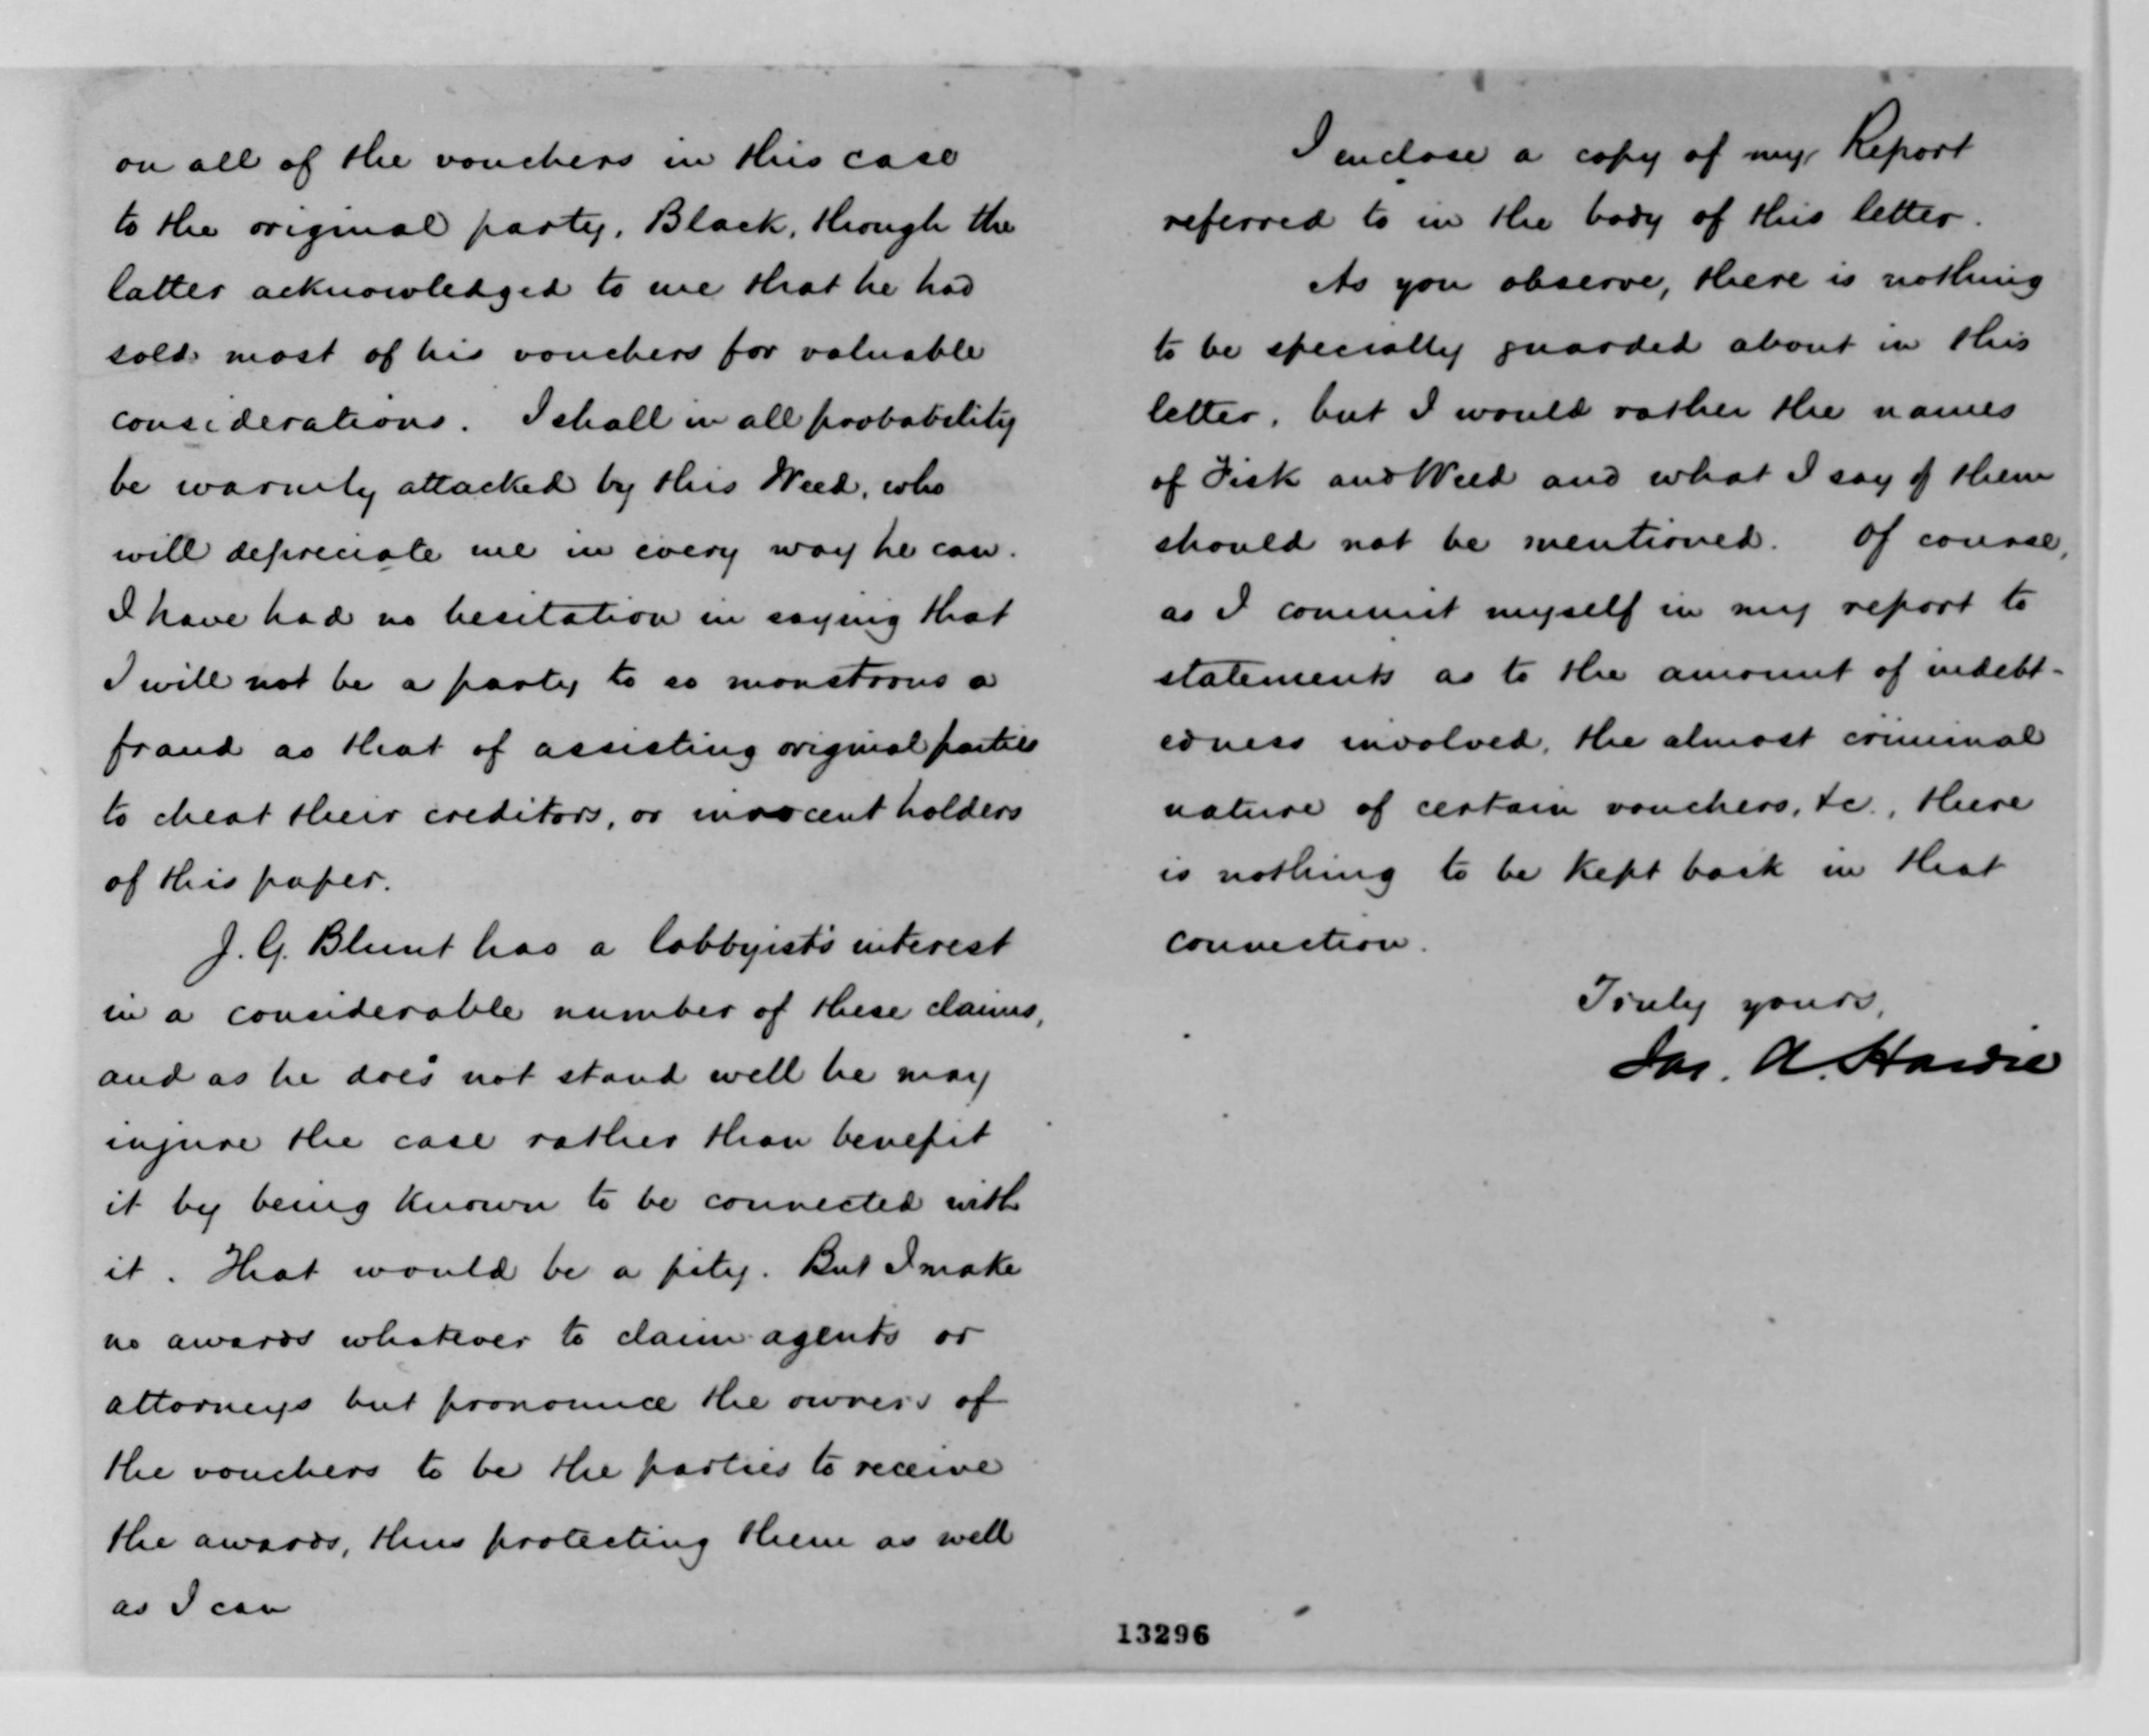 on all of the vouchers in this case
to the original party, Black, though the
latter acknowledged to me that he had
sold most of his vouchers for valuable
considerations. I shall in all probability
be warmly attacked by this Weed, who
will depreciate me in every way he can.
I have had no hesitation in saying that
I will not be a party to so monstrous a
fraud as that of assisting original parties
to cheat their creditors, or innocent holders
of this paper.
J. G. Blunt has a lobbyist's interest
in a considerable number of these claims,
and as he does not stand well he may
injure the case rather than benefit
it by being known to be connected with
it. That would be a pity. But I make
no awards whatever to claim agents or
attorneys but pronounce the owners of
the vouchers to be the parties to receive
the awards, thus protecting them as well
as I can
I enclose a copy of my Report
referred to in the body of this letter.
As you observe, there is nothing
to be specially guarded about in this
letter, but I would rather the names
of Fisk and Weed and what I say of them
should not be mentioned. Of course,
as I commit myself in my report to
statements as to the amount of indebt-
edness involved, the almost criminal
nature of certain vouchers, &c., there
is nothing to be kept back in that
connection.
Truly yours,
Jas. A. Hardie
13296